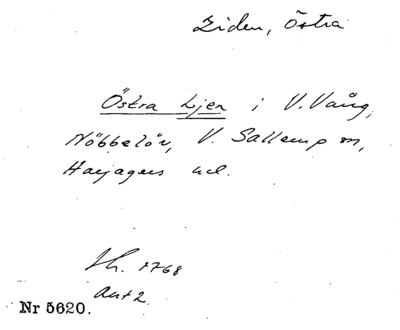 Liden, Östra
Östra Ljen i V. Vång,
Nöbbelöv, V. Sallerup sn,
Harjagers hd.
Sk. 1768
Akt 2
Nr 5620.